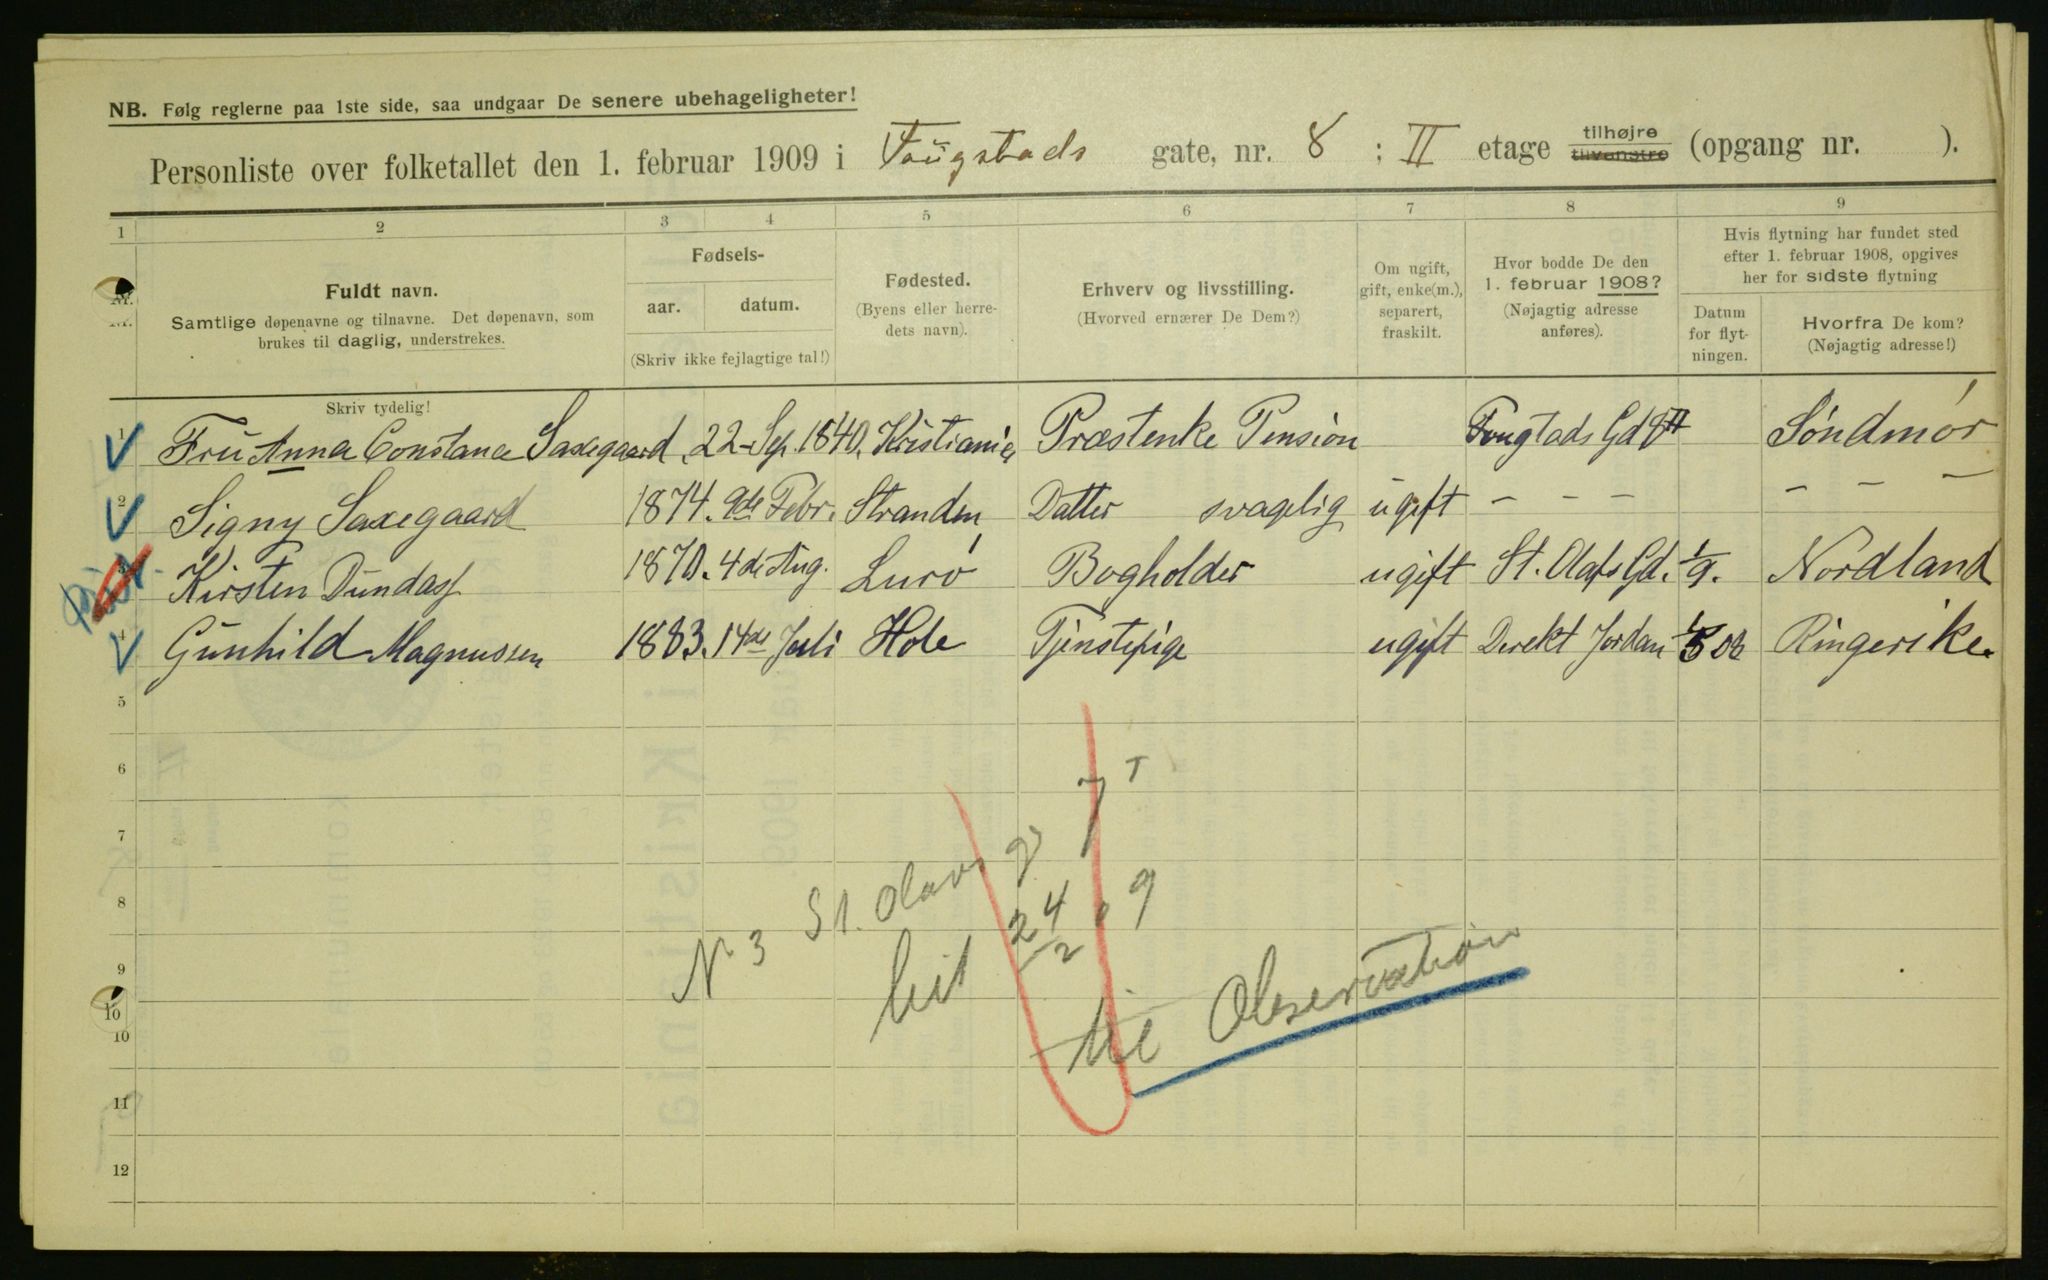 NB. Følg reglerne paa 1ste side, saa undgaar De senere ubehageligheter!
Personliste over folketallet den 1. februar 1909 i Fougstads gate, nr. 8 : II etage tilhøjre tilvenstre (opgang nr. ).
1 2 3 4 5 6 7 8 9
Nr.
Fuldt navn.
Samtlige døpenavne og tilnavne. Det døpenavn, som
brukes til daglig, understrekes.
Skriv tydelig!
Fødsels-
aar. datum.
(Skriv ikke fejlagtige tal!)
Fødested.
(Byens eller herre-
dets navn).
Erhverv og livsstilling.
(Hvorved ernærer De Dem?)
Om ugift,
gift, enke(m.),
separert,
fraskilt.
Hvor bodde De den
1. februar 1908?
(Nøjagtig adresse
anføres).
Hvis flytning har fundet sted
efter 1. februar 1908, opgives
her for sidste flytning
Datum
for flyt-
ningen.
Hvorfra De kom?
(Nøjagtig adresse!)
1 Fru Anna Constance Saxegaard, 22 Sep. 1840. Kristiania Præstenke Pension Fougstads Gd 8 II Søndmør
2 Signy Saxegaard 1874. 9de Febr. Stranden Datter svagelig ugift - - - - - -
3 Kirsten Dundass 1870. 4de Aug. Lurö Bogholder ugift St. Olafs Gd. 1/9. Nordland
4 Gunhild Magnussen 1883. 14de Juli Hole Tjenstepige ugift Direkt Jordan 08 Ringerike.
5
6
7
8
9
10
10
11
12
N 3 St. Olavs g 7 I
hit 24/2 09
til Observation